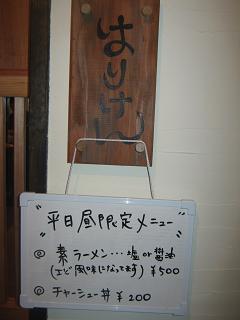 はりけん
"平日昼限定メニュー"
◎ 素ラーメン…塩or醤油
(エビ風味になってます) ¥500
◎ チャーシュー丼 ¥200